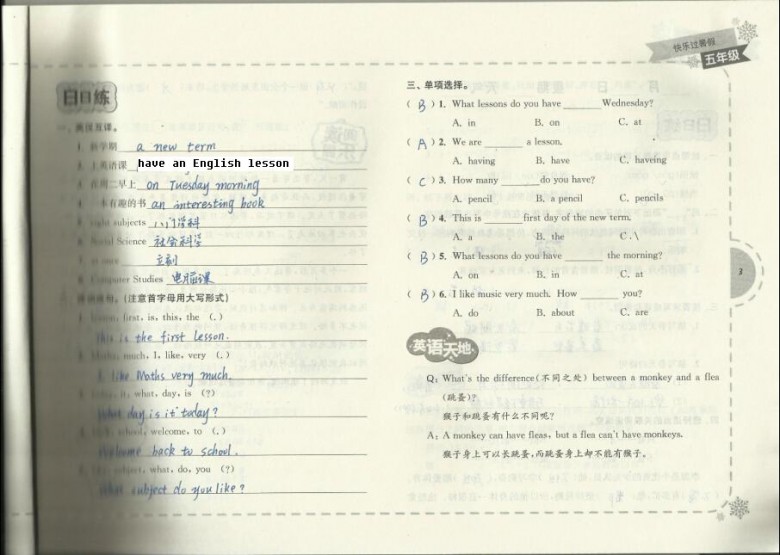 快乐过暑假
五年级
日日练
一、英汉互译。
1. 新学期 a new term
2. 上英语课 have an English lesson
3. 在周二早上 on Tuesday morning
4. 一本有趣的书 an interesting book
5. eight subjects 八门学科
6. Social Science 社会科学
7. at once 立刻
8. Computer Studies 电脑课
(注意首字母用大写形式)
1. lesson, first, is, this, the (.)
This is the first lesson.
2. Maths, much, I, like, very (.)
I like Maths very much.
it, what, day, is (?)
What day is it today?
school, welcome, to (.)
Welcome back to school.
subject, what, do, you (?)
What subject do you like?
三、单项选择。
( B ) 1. What lessons do you have ______ Wednesday?
A. in B. on C. at
( A ) 2. We are ______ a lesson.
A. having B. have C. haveing
( C ) 3. How many ______ do you have?
A. pencil B. a pencil C. pencils
( B ) 4. This is ______ first day of the new term.
A. a B. the C. \
( B ) 5. What lessons do you have ______ the morning?
A. on B. in C. at
( B ) 6. I like music very much. How ______ you?
A. do B. about C. are
英语天地
Q: What's the difference(不同之处) between a monkey and a flea
(跳蚤)?
猴子和跳蚤有什么不同呢?
A: A monkey can have fleas, but a flea can't have monkeys.
猴子身上可以长跳蚤,而跳蚤身上却不能有猴子。
3